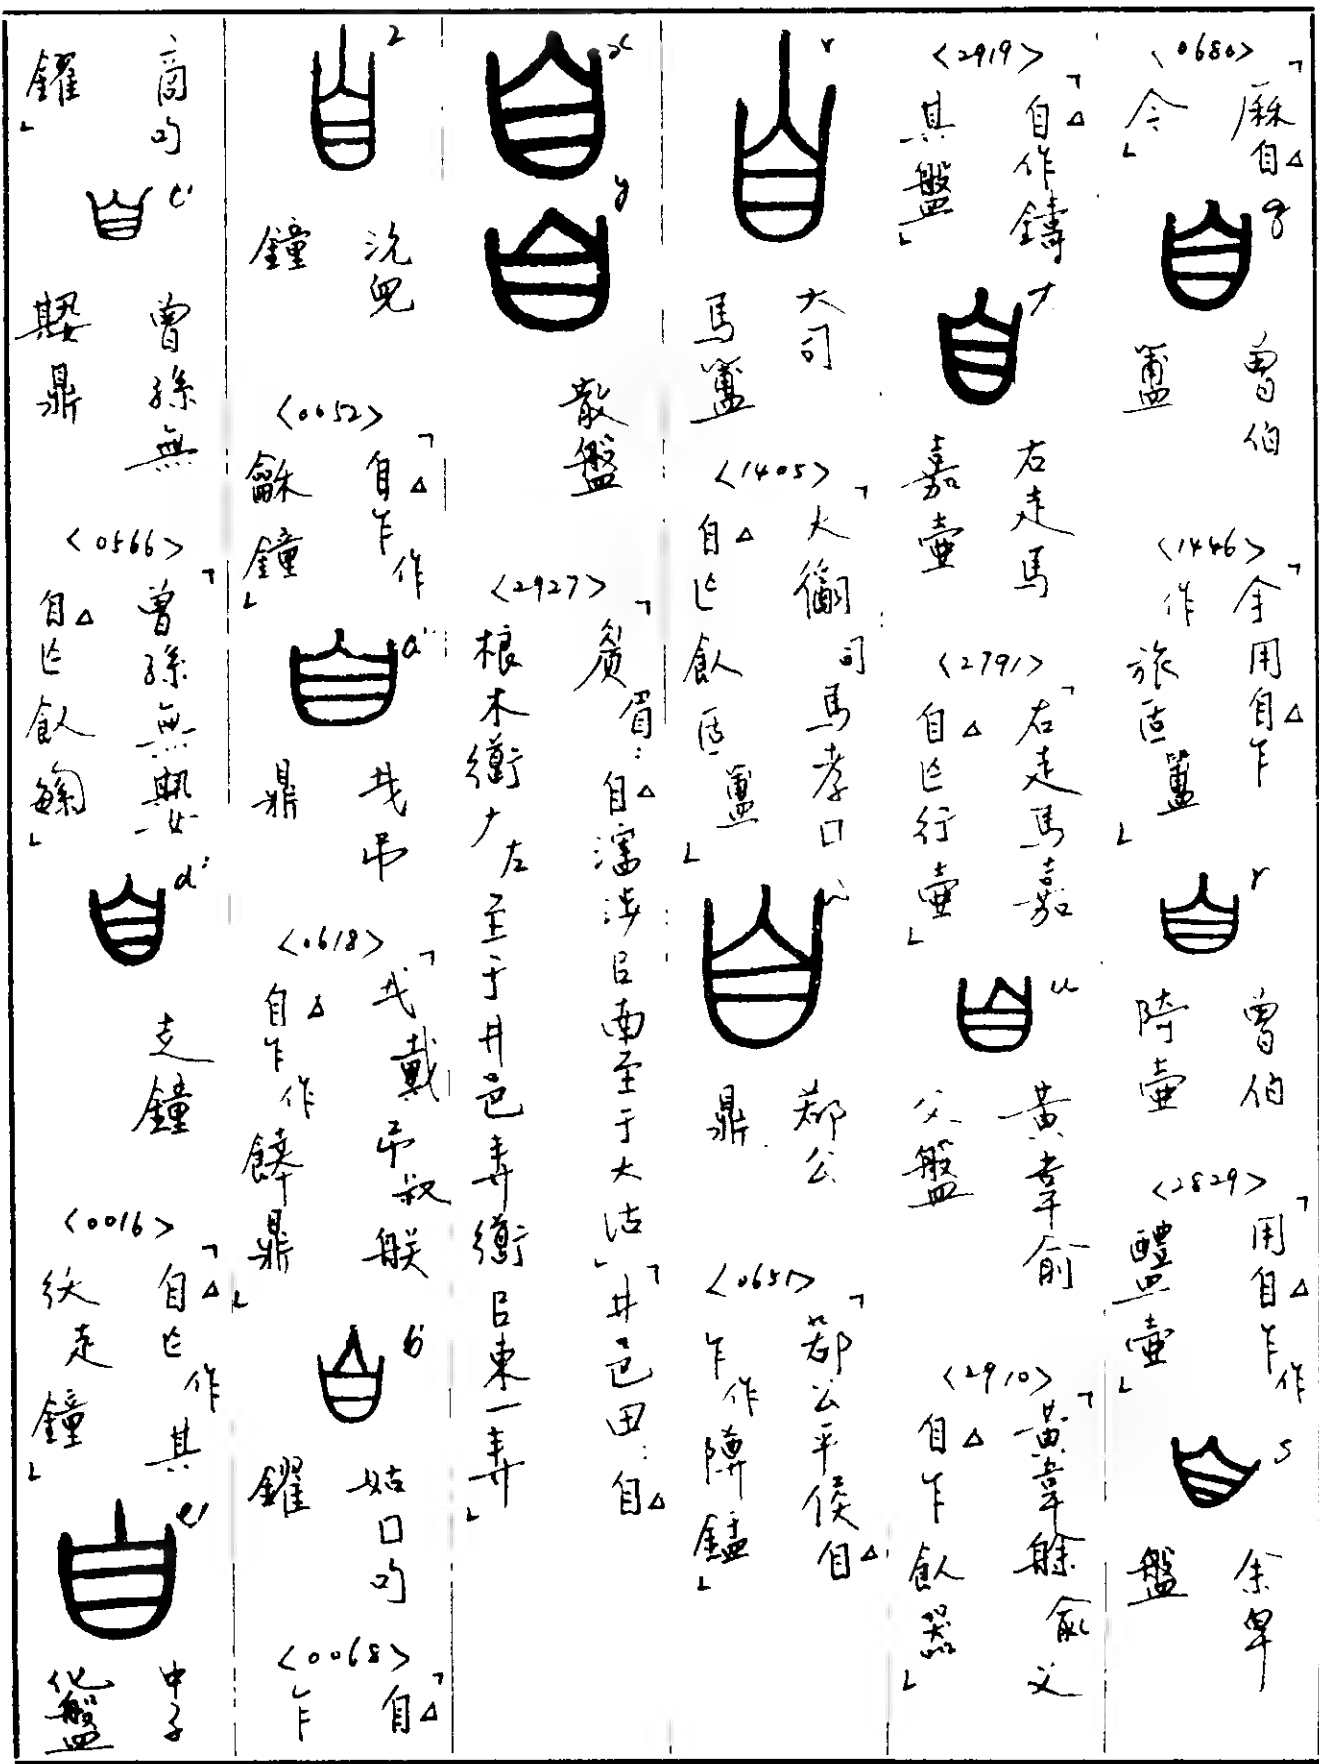 <0680>
「麻自△
令」
q
曾伯
簠
<1446>
「余用自△乍
作旅匡簠」
r
曾伯
陭壺
<2829>
「用自△乍作
醴壺」
s
余卑
盤
<2919>
「自△作鑄
其盤」
t
右走馬
嘉壺
<2791>
「右走馬嘉
自△乍行壺」
u
黃韋俞
父盤
<2910>
「黃韋艅俞父
自△乍飲器」
v
大司
馬簠
<1405>
「大司馬孝口
自△乍飤匡簠」
w
鄀公
鼎
<0651>
「鄀公平侯自△
乍作障錳」
x
y
散盤
<2927>
「眉:自△瀗涉㠯南至于大沽」「井邑田:自△
根木道ナ左至于井邑弄道㠯東一弄」
z
沇兒
鐘
<0052>
「自△乍作
龢鐘」
a'
弔
鼎
<0618>
「戴弔叔朕
自△乍作饙鼎」
b'
姑口句
鑃
<0068>
「自△
乍
商句
鑃」
c'
曾孫無
期鼎
<0566>
「曾孫無
自△乍飤」
d'
走鐘
<0016>
「自△乍作其
走鐘」
e'
中子
化盤